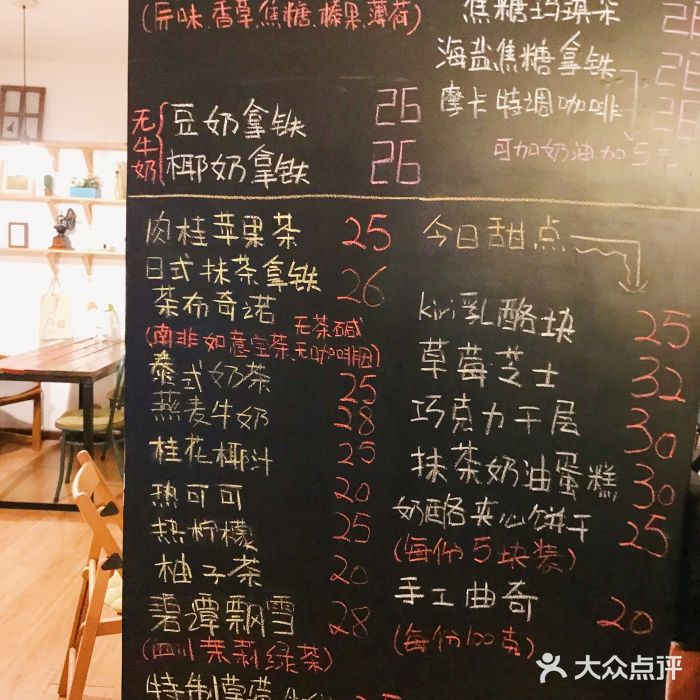 (异味.香草.焦糖.榛果.薄荷)
无牛奶
豆奶拿铁 26
椰奶拿铁 26
焦糖玛琪朵 26
海盐焦糖拿铁 26
摩卡特调咖啡 26
可加奶油加5元
肉桂苹果茶 25
日式抹茶拿铁 26
茶布奇诺
(南非如意宝茶 无茶碱 无咖啡因)
泰式奶茶 25
燕麦牛奶 28
桂花椰汁 25
热可可 20
热柠檬 25
柚子茶 20
碧潭飘雪 28
(四川茉莉绿茶)
特制草莓
今日甜点
kiri乳酪块 25
草莓芝士 32
巧克力千层 30
抹茶奶油蛋糕 30
奶酪夹心饼干 25
(每份5块装)
手工曲奇 20
(每份100克)
大众点评